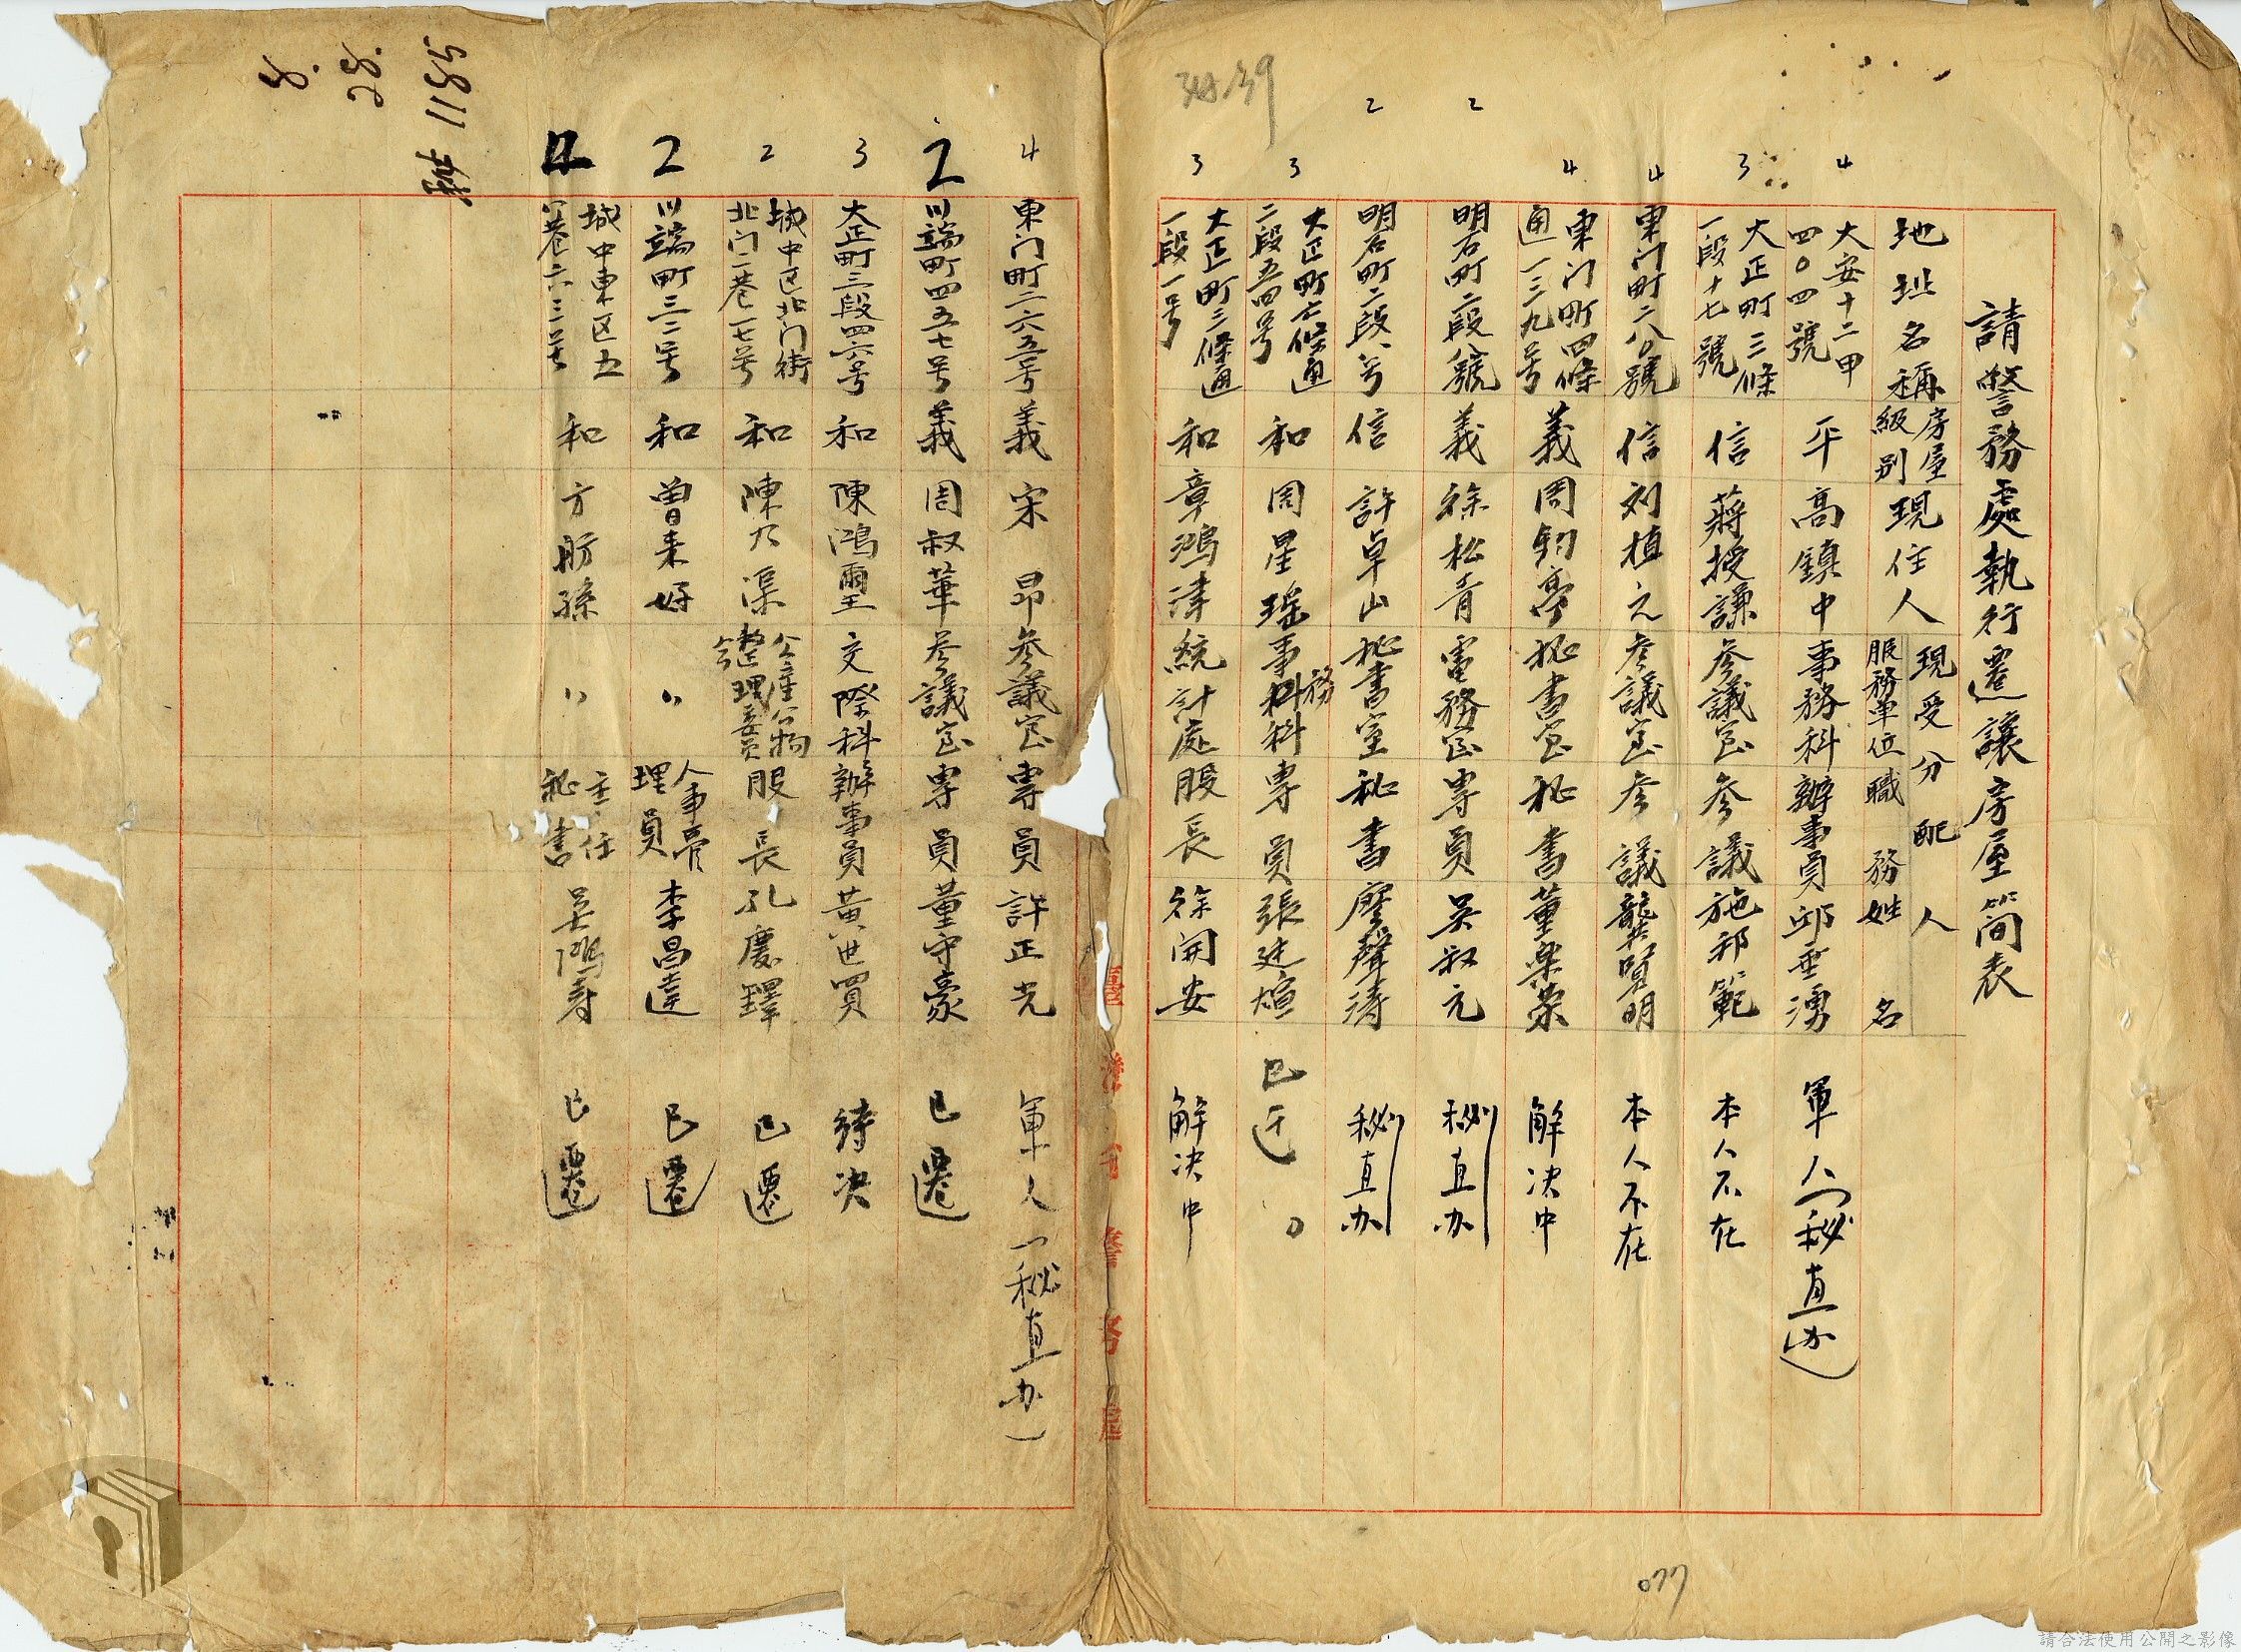 請警務處執行遷讓房屋簡表
地址名稱 房屋級別 現住人 現受分配人 服務單位 職務 姓名
4 大安十二甲四〇四號 平 高鎮中 事務科 辦事員 邱垂湧 軍人(秘直办)
3 大正町三條一段十七號 信 蔣授謙 參議室 參議 施邦範 本人不在
4 東门町二八〇號 信 刘植之 参議室 参議 龔賢明 本人不在
4 東门町四條通一三九号 義 周鈞亭 秘書室 秘書 董樂榮 解决中
2 明石町二段八號 義 徐松青 電務室 専員 吴叔元 秘直办
2 明石町二段八号 信 許卓山 秘書室 秘書 廖聲濤 秘直办
3 大正町六條通二段五四号 和 周星瑤 事務科 専員 張廷煊 已迁
3 大正町二條通一段一号 和 章鴻津 統計處 股長 徐開安 解决中
4 東门町二六五号 義 宋昂 參議室 專員 許正光 軍人(秘直办)
2 川端町四五七号 義 周叔華 參議室 專員 董守豪 已遷
3 大正町三段四六号 和 陳鴻璽 交際科 辦事員 黃世買 待决
2 城中区北门街北门二巷一七号 和 陳乃渠 公産公物整理委員会 股長 孔慶鐸 已遷
2 川端町三二号 和 曾来好 〃 人事管理員 李昌達 已遷
城中東区五八巷六三号 和 方肪孫 〃 主任秘書 吴鴻壽 已遷
39
5811
077
請合法使用公開之影像